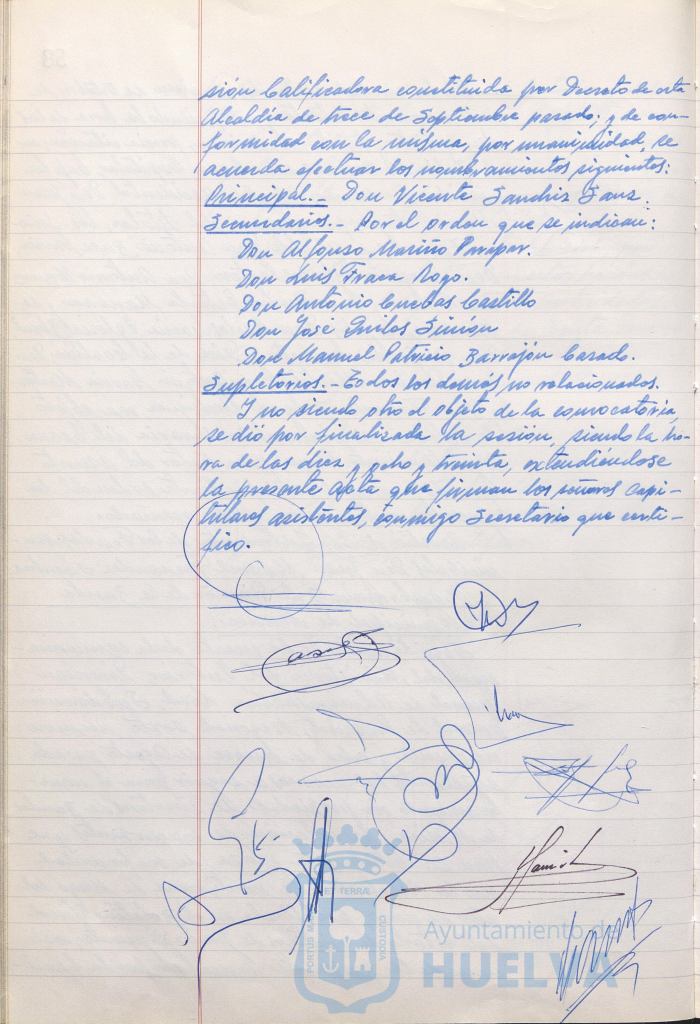 sión Calificadora constituida por Decreto de esta
Alcaldía de trece de Septiembre pasado; y de con-
formidad con la misma, por unanimidad, se
acuerda efectuar los nombramientos siguientes:
Principal.- Don Vicente Sanchiz Sanz.
Secundarios.- Por el orden que se indican:
Don Alfonso Mariño Parapar.
Don Luis Fraca Rogo.
Don Antonio Cuebas Castillo
Don José Simón
Don Manuel Patricio Barrajón Casado.
Supletorios.- Todos los demás no relacionados.
Y no siendo otro el objeto de la convocatoria,
se dió por finalizada la sesión, siendo la ho-
ra de las diez y ocho y treinta, extendiéndose
la presente Acta que firman los señores Capi-
tulares asistentes, conmigo Secretario que certi-
fico.
PORTUS MARIS ET TERRÆ CUSTODIA
Ayuntamiento de
HUELVA